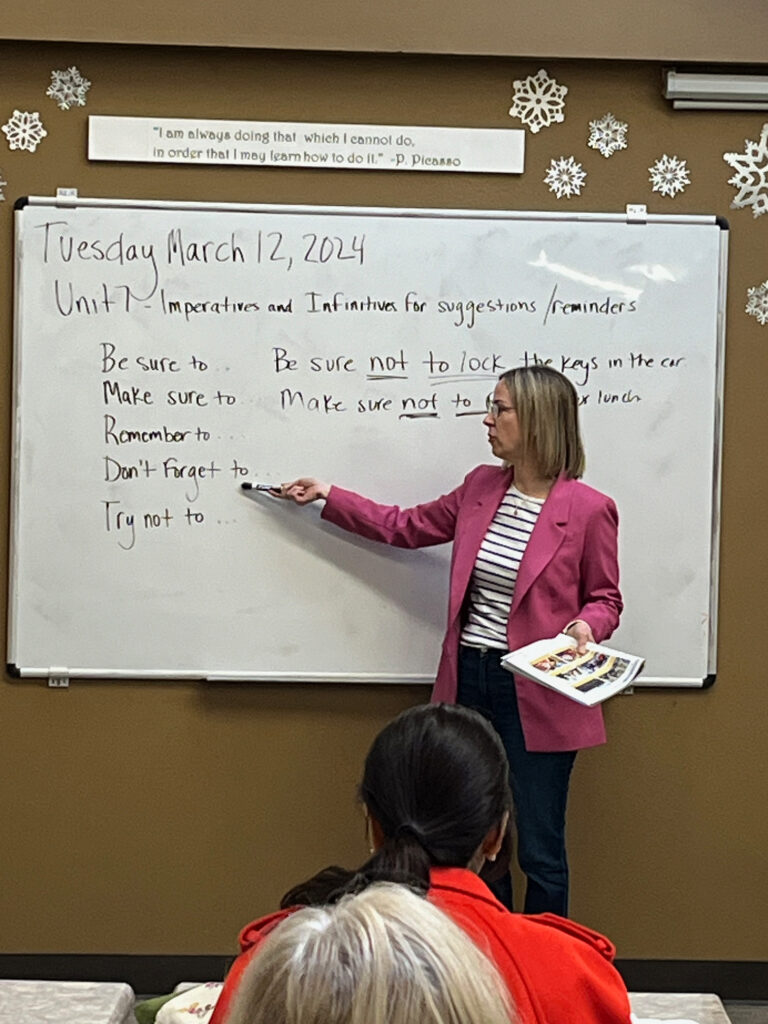 "I am always doing that which I cannot do,
in order that I may learn how to do it." -P. Picasso
Tuesday March 12, 2024
Unit 7 - Imperatives and Infinitives for suggestions/reminders
Be sure to .. Be sure not to lock the keys in the car
Make sure to .. Make sure not to lunch
Remember to ...
Don't Forget to ...
Try not to ...